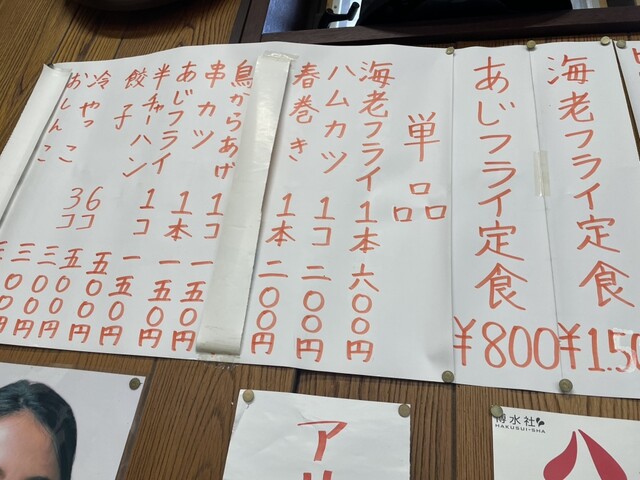 海老フライ定食 ¥1.50
あじフライ定食 ¥800
単品
海老フライ 1本 六〇〇円
ハムカツ 1コ 二〇〇円
春巻き 1本 二〇〇円
鳥からあげ 1コ 一五〇円
串カツ 1本 一五〇円
あじフライ 1コ 一五〇円
半チャーハン 五〇〇円
餃子 6コ 五〇〇円
冷やっこ 3コ 三〇〇円
おしんこ 三〇〇円
ア
博水社
HAKUSUI-SHA